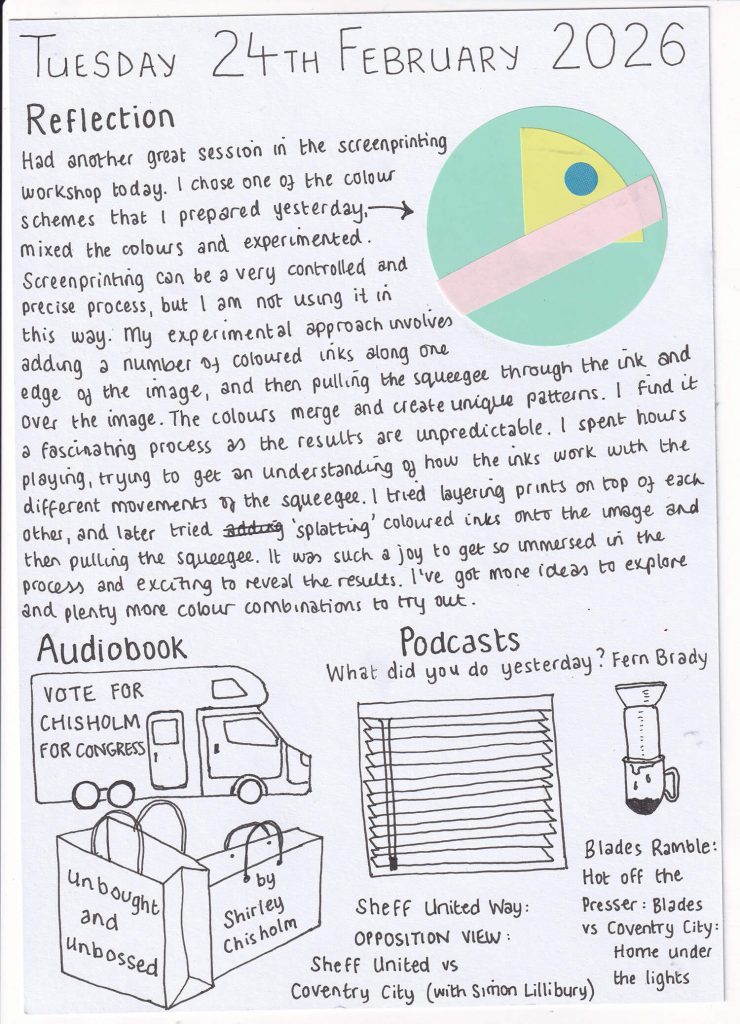 TUESDAY 24TH FEBRUARY 2026
Reflection
Had another great session in the screenprinting
workshop today. I chose one of the colour
schemes that I prepared yesterday,
mixed the colours and experimented.
Screenprinting can be a very controlled and
precise process, but I am not using it in
this way. My experimental approach involves
adding a number of coloured inks along one
edge of the image, and then pulling the squeegee through the ink and
over the image. The colours merge and create unique patterns. I find it
a fascinating process as the results are unpredictable. I spent hours
playing, trying to get an understanding of how the inks work with the
different movements of the squeegee. I tried layering prints on top of each
other, and later tried adding 'splatting' coloured inks onto the image and
then pulling the squeegee. It was such a joy to get so immersed in the
process and exciting to reveal the results. I've got more ideas to explore
and plenty more colour combinations to try out.
Audiobook
VOTE FOR
CHISHOLM
FOR CONGRESS
Unbought
and
unbossed
by
Shirley
Chisholm
Podcasts
What did you do yesterday? Fern Brady
Sheff United Way:
OPPOSITION VIEW:
Sheff United vs
Coventry City (with Simon Lillibury)
Blades Ramble:
Hot off the
Presser: Blades
vs Coventry City:
Home under
the lights